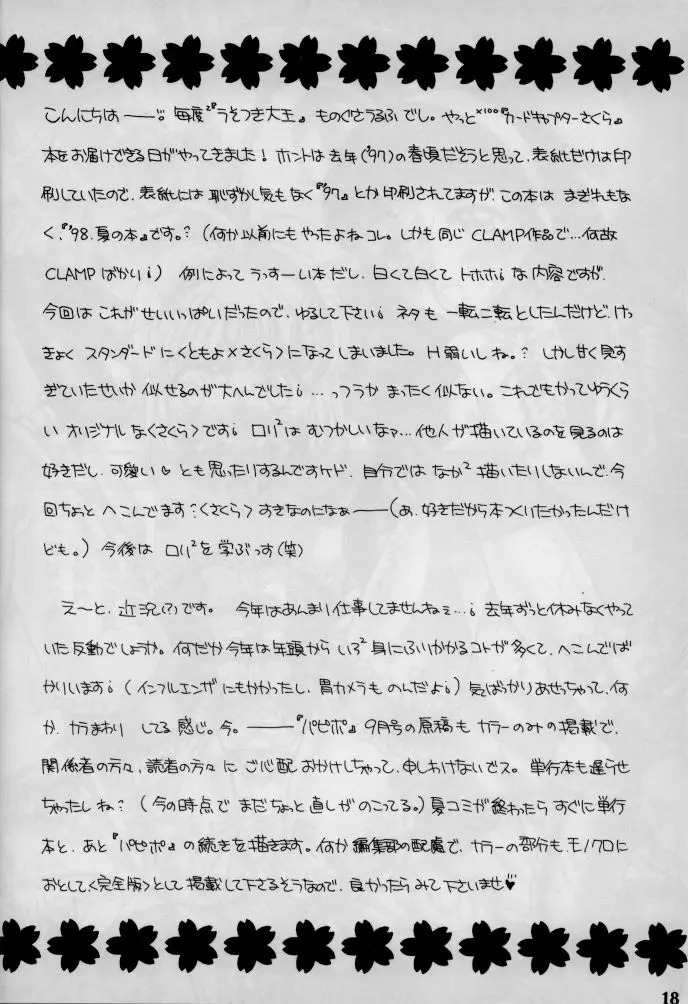 こんにちは――。毎度²『うそつき大王』ものぐさうるふでし。やっと×100『カードキャプターさくら』
本をお届けできる日がやってきました!ホントは去年('97)の春頃だそうと思って、表紙だけは印
刷していたので、表紙には恥ずかし気もなく『'97』とか印刷されてますが、この本はまぎれもな
く、『'98.夏の本』です。?(何か以前にもやったよねコレ。しかも同じCLAMP作品で…何故
CLAMPばかり¡)例によってうっすーい本だし、白くて白くてトホホ¡な内容ですが、
今回はこれがせいいっぱいだったので、ゆるして下さい¡ネタも一転二転としたんだけど、けっ
きょくスタンダードに〈ともよ×さくら〉になってしまいました。H弱いしね。?しかし甘く見す
ぎていたせいか似せるのが大へんでした¡…っつうかまったく似ない。これでもかってゆうくら
いオリジナルな〈さくら〉です¡ロリ²はむつかしいなァ…他人が描いているのを見るのは
好きだし、可愛い♡とも思ったりするんですケド、自分ではなか²描いたりしないんで、今
回ちょっとへこんでます?〈さくら〉すきなのになぁ――(あ、好きだから本つくりたかったんだけ
ども。)今後はロリ²を学ぶっす(笑)
え〜と、近況(?)です。今年はあんまり仕事してませんねぇ…¡去年ずっと休みなくやって
いた反動でしょうか。何だか今年は年頭からいろ²身にふりかかるコトが多くて、へこんでば
かりいます¡(インフルエンザにもかかったし、胃カメラものんだよ¡)気ばっかりあせっちゃって、何
か、カラまわりしてる感じ。今。――『パピポ』9月号の原稿もカラーのみの掲載で、
関係者の方々、読者の方々にご心配おかけしちゃって、申しわけないでス。単行本も遅らせ
ちゃったしね?(今の時点でまだちょっと直しがのこってる。)夏コミが終わったらすぐに単行
本と、あと『パピポ』の続きを描きます。何か編集部の配慮で、カラーの部分も、モノクロに
おとして〈完全版〉として掲載して下さるそうなので、良かったらみて下さいませ♥
18